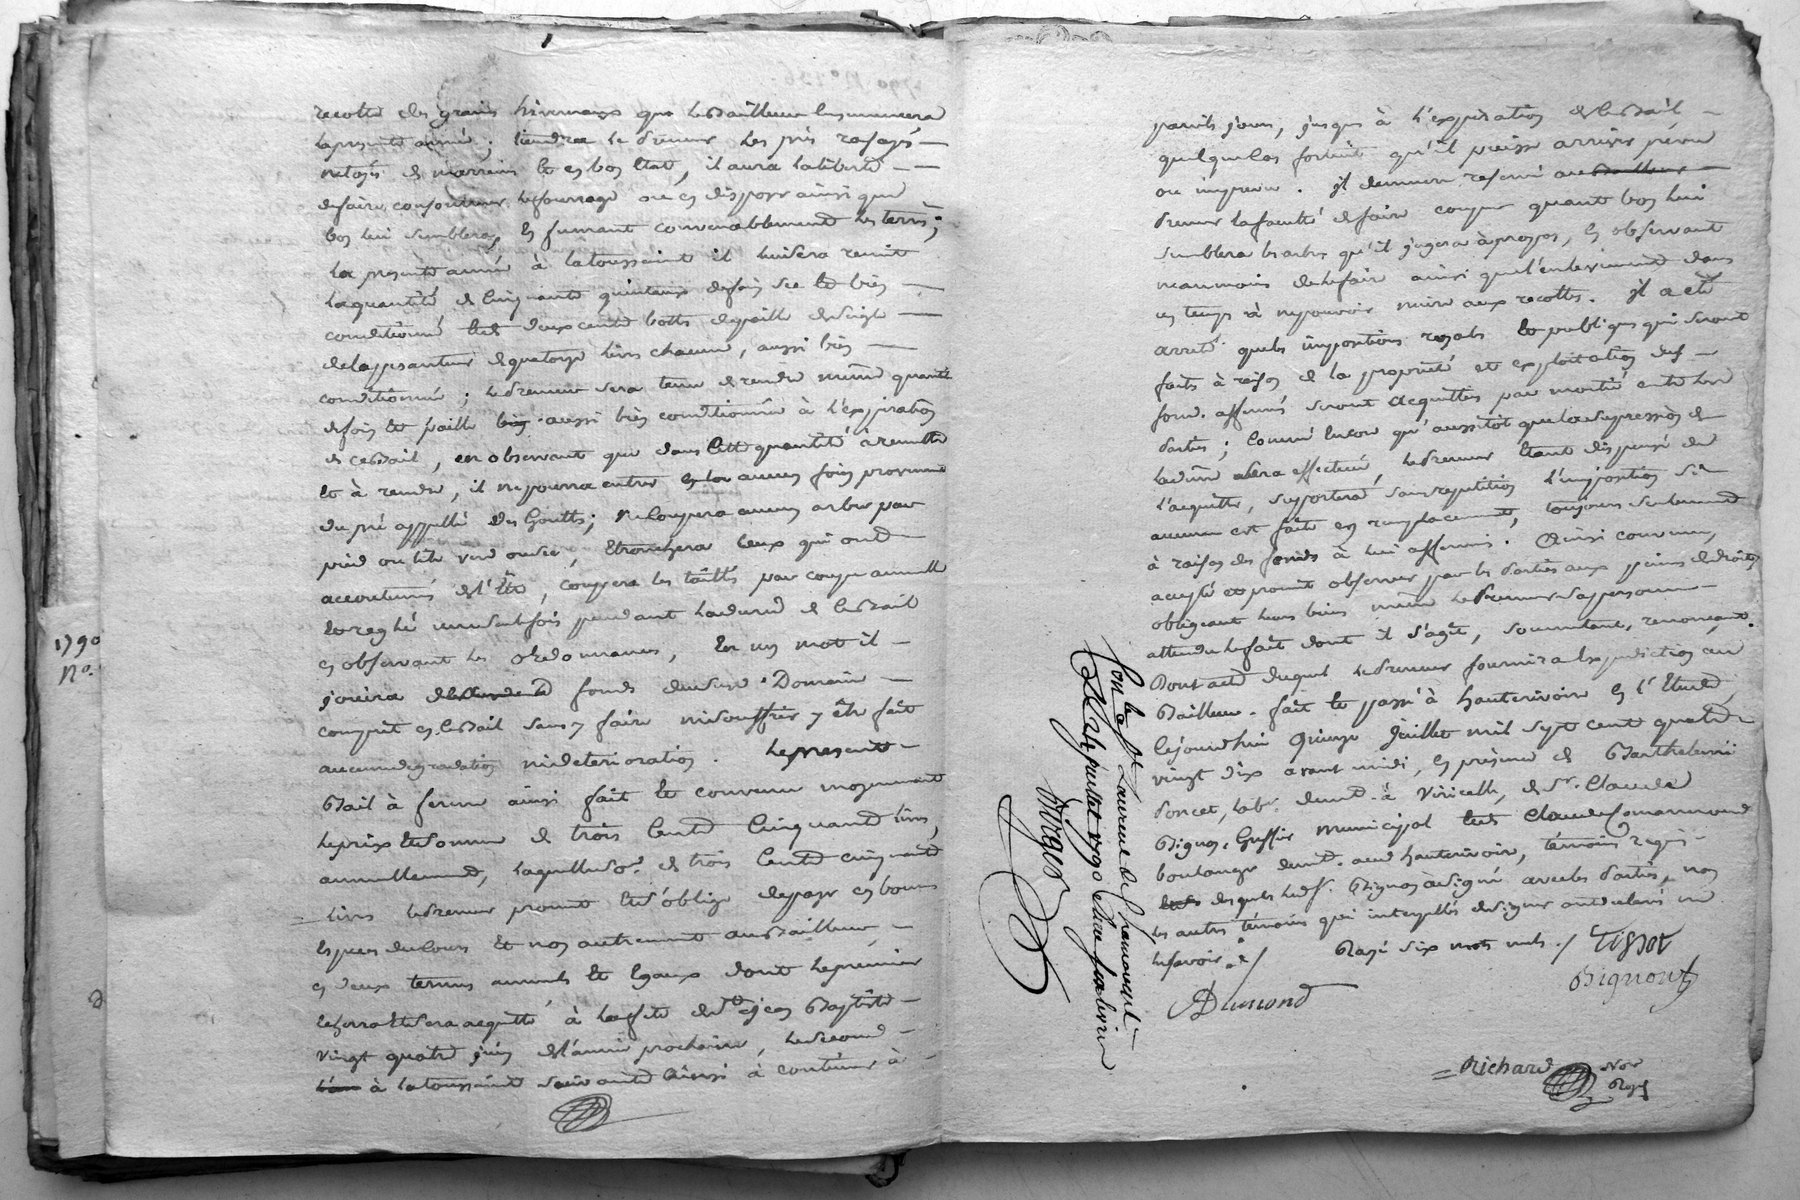 recolte des grains hivernaux que le Bailleur ensemencera
la presente année; tiendra le Preneur les prés rasaigés
netoyés et en bon Etat, il aura la liberté
de faire consommer le fourrage ou en disposer ainsi que
bon lui semblera, En fumant convenablement les terres;
La presente année à la toussaint il lui sera remit
la quantité de Cinquante quintaux de foin sec et bien
conditionné Et deux cents bottes de paille de seigle
de la pesanteur de quatorze livres chacune, aussi bien
conditionnée; le Preneur sera tenu de rendre même quantité
de foin et paille aussi bien conditionnée à l'expiration
de ce Bail, en observant que dans Cette quantité à remettre
Et à rendre, il ne pourra entrer aucun foin provenant
du pré appellé Des Goutts; ne Coupera aucun arbre par
pied ou tête verd ou sec, Etronchera Ceux qui ont
accoutumés de l'Etre, Coupera les taillis par coupe annuelle
Et reglé une seule fois pendant la durée de Ce Bail
en observant les ordonnances, En un mot il
jouira fonds dud. Domaine
comprit en ce Bail sans y faire ni souffrir y être fait
aucune degradation ni deterioration. Le present
Bail à ferme ainsi fait Et convenu moyennant
le prix Et somme de trois Cents Cinquante livres,
annuellement, laquelle so.e de trois Cents cinquante
livres le Preneur promet Et s'oblige de payer en bonnes
Especes du Cours Et non autrement au Bailleur,
en deux termes annuels Et Egaux dont le premier
Echerra Et sera acquitté à la fete de St Jean Baptiste
vingt quatre juin de l'année prochaine, le second
à la toussaint suivante Ainsi à continuer à
1790
No.
pareils jours, jusques à l'expiration de Ce Bail
quelque Cas fortuit qu'il puisse arriver prévu
ou imprévu. Il demeure reservé au
Preneur la faculté de faire couper quant bon lui
semblera les arbres qu'il jugera à propos, En observant
neanmoins de le faire ainsi que l'enlevement dans
un temps à ne pouvoir nuire aux recoltes. Il a été
arreté que les impositions royales Et publiques qui seront
faits à raison de la proprieté et exploitation des
fonds affermés seront acquittés par moitié entre les
Parties; Comme Encore qu'aussitôt que la supression de
la dime sera effectuée, le Preneur Etant dispensé de
l'acquitter, supportera sans repetition l'imposition si
aucune est faite en remplacement, toujours seulement
à raison des fonds à lui affermés. Ainsi convenu,
accepté et promit observer par les Parties aux peines de droits,
obligeant leurs biens même le Preneur sa personne
attendu le fait dont il s'agit, soumettant, renonçant.
Dont acte duquel le Preneur fournira Expedition au
Bailleur. fait et passé à hauterivoire En l'Etude,
Cejourd'hui Quinze Juillet mil sept cent quatre
vingt dix avant midi, En presence de Barthelemi
Poncet, labr. demt. à Viricelle, de Sr. Claude
Bignon, Greffier municipal Et de Claude
boulanger demt. aud hauterivoire, témoins requis
desquels led Sr. Bignon à signé avec les Parties, non
les autres témoins qui interpellés de signer ont declaré ne
le savoir
Rayé six mots nuls. Tissot
Dumond
Bignon
Richard
Nre
Royal
Con.lé à St Laurent de Chamousset
Le 24 juillet 1790